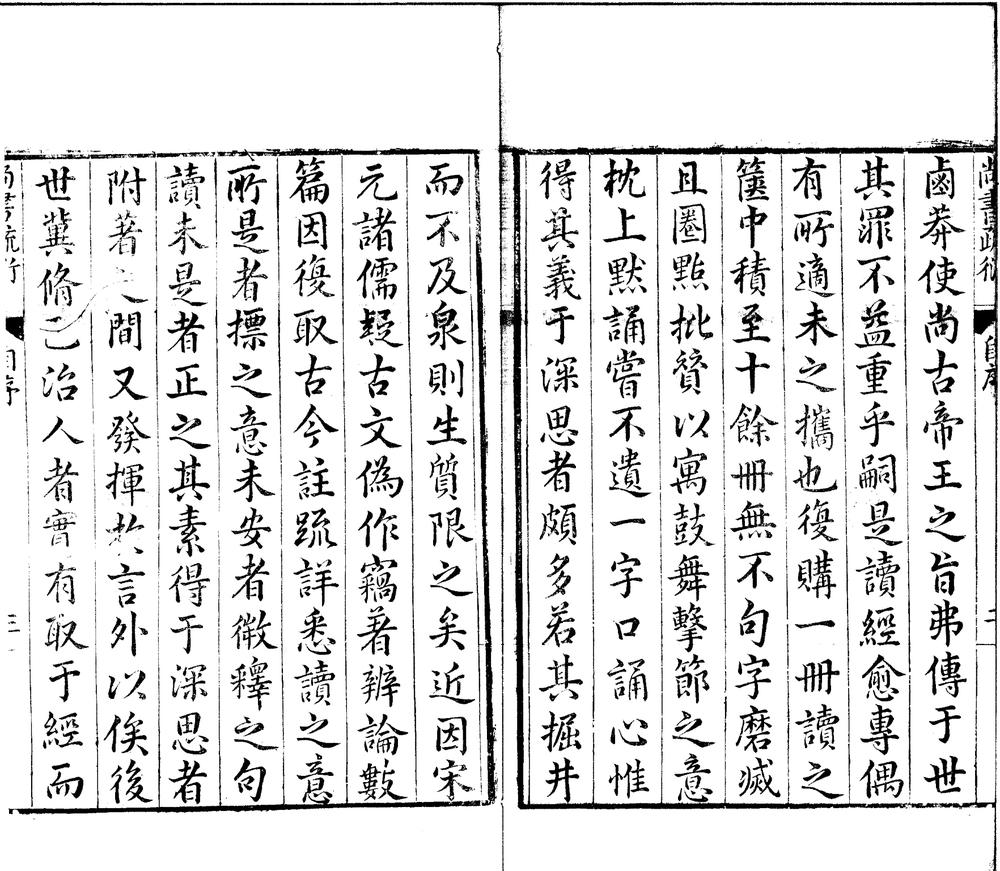 尚書疏衍 自序 二
鹵莽使尚古帝王之旨弗傳于世
其罪不益重乎嗣是讀經愈專偶
有所適未之攜也復購一冊讀之
篋中積至十餘冊無不句字磨滅
且圈點批贊以寓鼓舞擊節之意
枕上默誦嘗不遺一字口誦心惟
得其義于深思者頗多若其掘井
而不及泉則生質限之矣近因宋
元諸儒疑古文偽作竊著辨論數
篇因復取古今註疏詳悉讀之意
所是者標之意未安者微釋之句
讀未是者正之其素得于深思者
附著之間又發揮於言外以俟後
世冀脩己治人者實有取于經而
尚書疏衍 自序 三